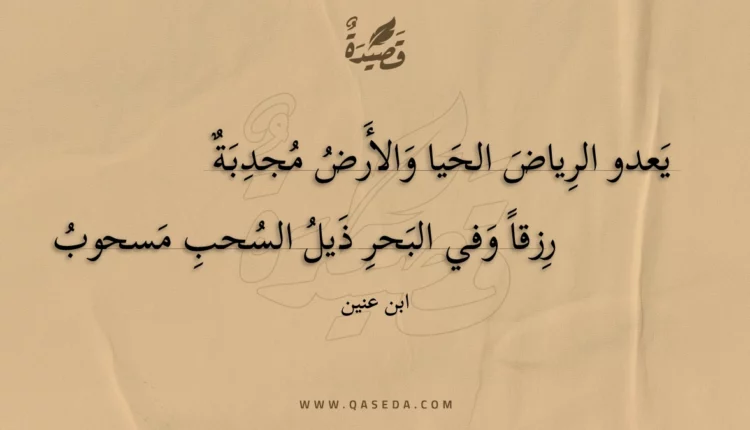 قَصِيدَةٌ
يَعدو الرِياضَ الحَيا وَالأَرضُ مُجدِبَةٌ
رِزقاً وَفي البَحرِ ذَيلُ السُحبِ مَسحوبُ
ابن عنين
WWW.QASEDA.COM